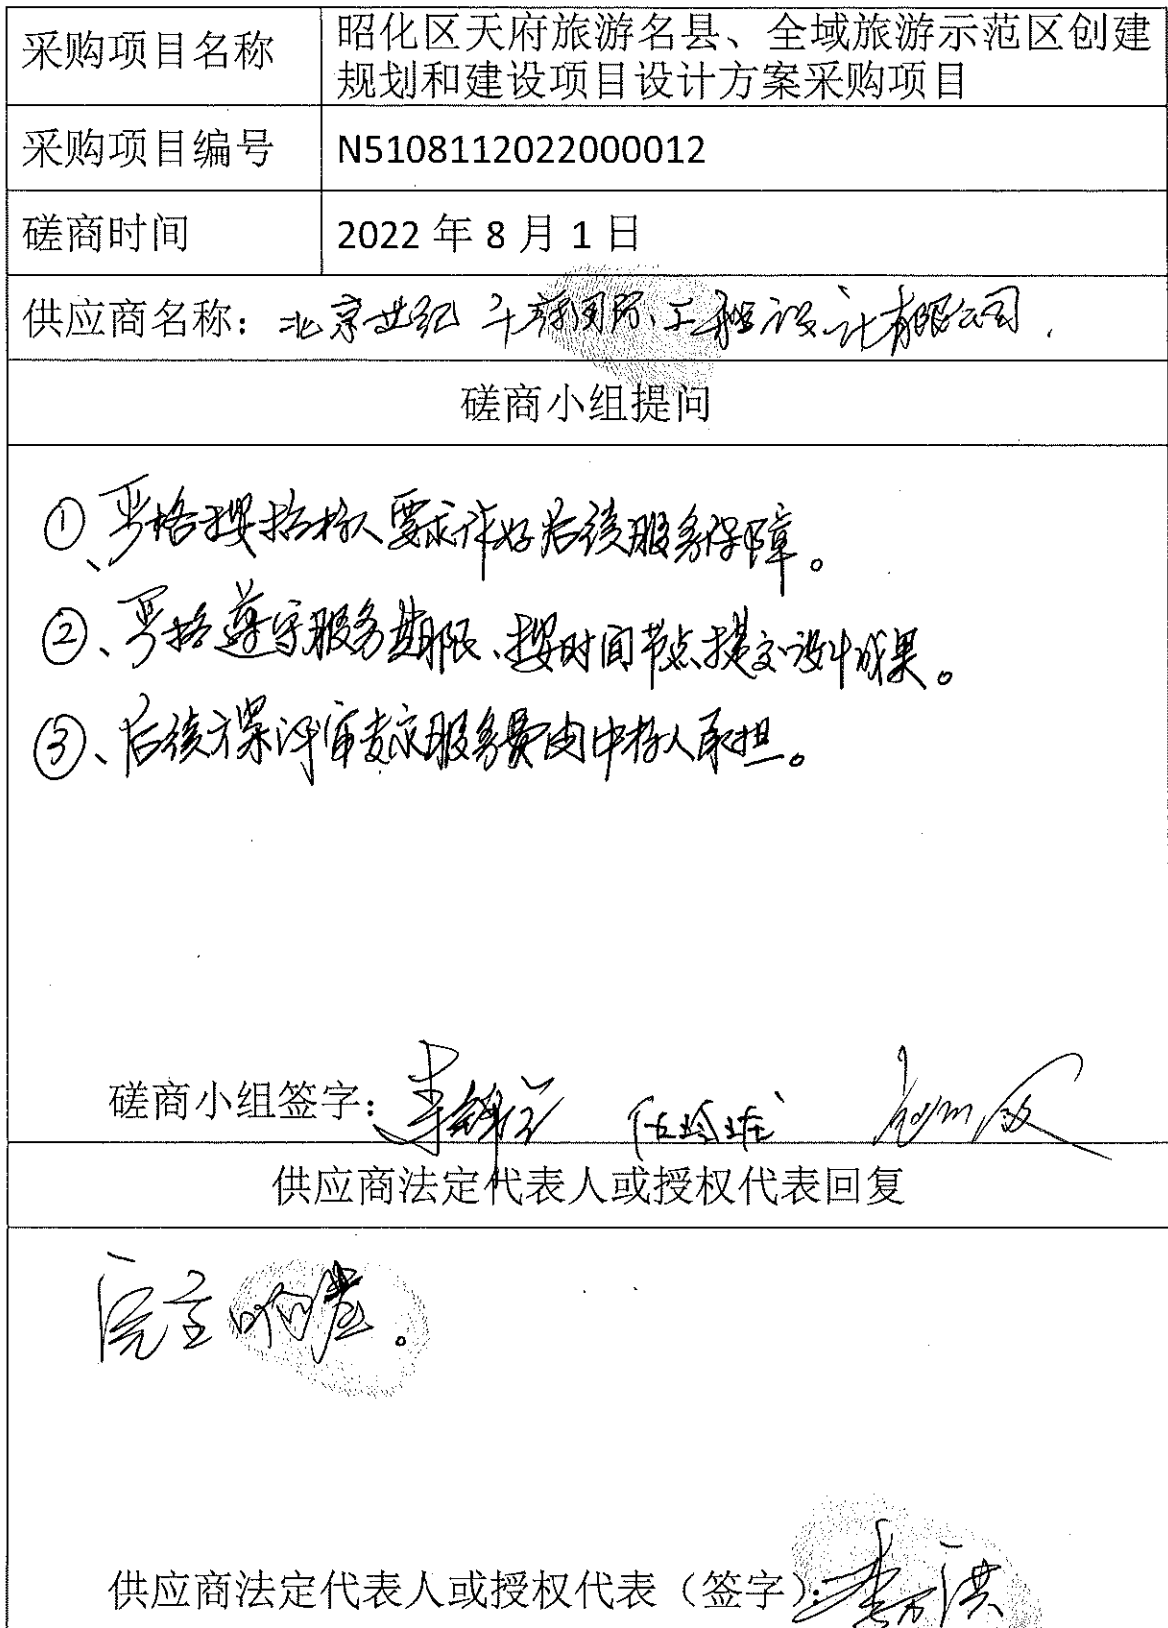 采购项目名称
昭化区天府旅游名县、全域旅游示范区创建
规划和建设项目设计方案采购项目
采购项目编号
N5108112022000012
磋商时间
2022 年 8 月 1 日
供应商名称：北京世纪千府国际工程设计有限公司.
磋商小组提问
①、严格按招标人要求作好后续服务保障。
②、严格遵守服务期限、按时间节点提交设计成果。
③、后续方案评审专家服务费由中标人承担。
磋商小组签字：李锦
供应商法定代表人或授权代表回复
完全响应。
供应商法定代表人或授权代表（签字）：李洪